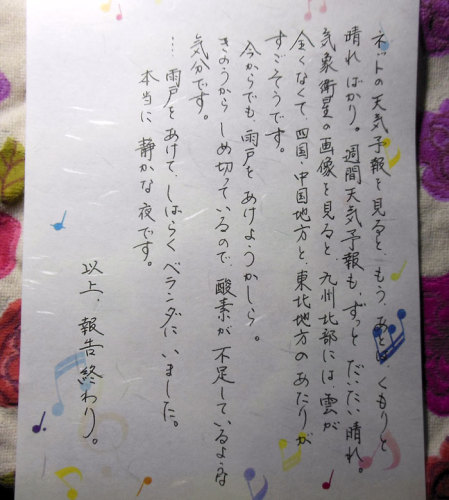 ネットの天気予報を見ると、もう、あとは、くもりと
晴ればかり。週間天気予報も、ずっと だいたい晴れ。
気象衛星の画像を見ると、九州北部には、雲が
全くなくて、四国、中国地方と、東北地方のあたりが
すごそうです。
今からでも、雨戸を あけようかしら。
きのうから しめ切っているので、酸素が 不足しているような
気分です。
…雨戸をあけて、しばらく ベランダに いました。
本当に 静かな 夜です。
以上、報告終わり。